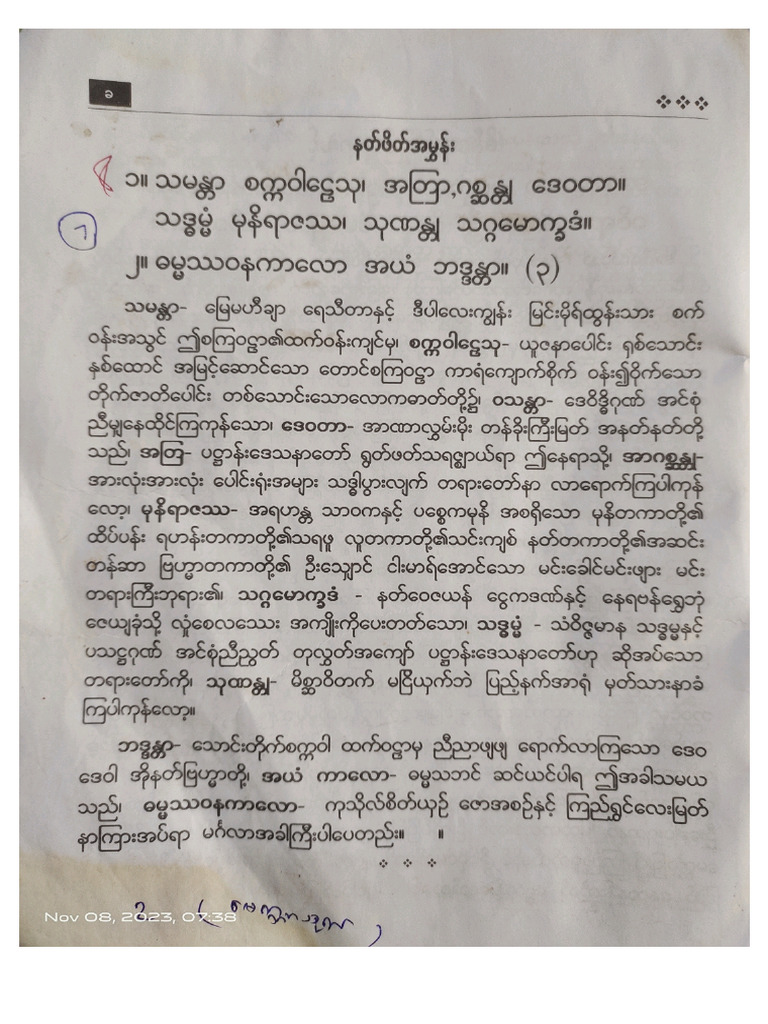 ခ
နတ်ဖိတ်အမွှန်း
၁။ သမန္တာ စက္ကဝါဠေသု၊ အတြာ,ဂစ္ဆန္တု ဒေဝတာ။
သဒ္ဓမ္မံ မုနိရာဇဿ၊ သုဏန္တု သဂ္ဂမောက္ခဒံ။
၂။ ဓမ္မဿဝနကာလော အယံ ဘဒ္ဒန္တာ။ (၃)
သမန္တာ- မြေမဟီချာ ရေသီတာနှင့် ဒီပါလေးကျွန်း မြင်းမိုရ်ထွန်းသား စက်
ဝန်းအသွင် ဤစကြဝဠာ၏ထက်ဝန်းကျင်မှ၊ စက္ကဝါဠေသု- ယူဇနာပေါင်း ရှစ်သောင်း
နှစ်ထောင် အမြင့်ဆောင်သော တောင်စကြဝဠာ ကာရံကျောက်စိုက် ဝန်း၍ဝိုက်သော
တိုက်ဇာတိပေါင်း တစ်သောင်းသောလောကဓာတ်တို့၌၊ ဝသန္တာ- ဒေဝိဒ္ဓိဂုဏ် အင်စုံ
ညီမျှနေထိုင်ကြကုန်သော၊ ဒေဝတာ- အာဏာလွှမ်းမိုး တန်ခိုးကြီးမြတ် အနတ်နတ်တို့
သည်၊ အတြ- ပဋ္ဌာန်းဒေသနာတော် ရွတ်ဖတ်သရဇ္ဈာယ်ရာ ဤနေရာသို့၊ အာဂစ္ဆန္တု-
အားလုံးအားလုံး ပေါင်းရုံးအများ သဒ္ဓါပွားလျက် တရားတော်နာ လာရောက်ကြပါကုန်
လော့၊ မုနိရာဇဿ- အရဟန္တ သာဝကနှင့် ပစ္စေကမုနိ အစရှိသော မုနိတကာတို့၏
ထိပ်ပန်း ရဟန်းတကာတို့၏သရဖူ လူတကာတို့၏သင်းကျစ် နတ်တကာတို့၏အဆင်း
တန်ဆာ ဗြဟ္မာတကာတို့၏ ဦးသျှောင် ငါးမာရ်အောင်သော မင်းခေါင်မင်းဖျား မင်း
တရားကြီးဘုရား၏၊ သဂ္ဂမောက္ခဒံ - နတ်ဝေဇယန် ငွေကဒဏ်နှင့် နေရဗန်ရွှေဘုံ
ဇေယျခုံသို့ လှုံစေလသေး အကျိုးကိုပေးတတ်သော၊ သဒ္ဓမ္မံ - သံဝိဇ္ဇမာန သဒ္ဓမ္မနှင့်
ပသဋ္ဌဂုဏ် အင်စုံညီညွတ် တုလွတ်အကျော် ပဋ္ဌာန်းဒေသနာတော်ဟု ဆိုအပ်သော
တရားတော်ကို၊ သုဏန္တု- မိစ္ဆာဝိတက် မငြိယှက်ဘဲ ပြည့်နက်အာရုံ မှတ်သားနာခံ
ကြပါကုန်လော့။
ဘဒ္ဒန္တာ- သောင်းတိုက်စက္ကဝါ ထက်ဝဠာမှ ညီညာဖျဖျ ရောက်လာကြသော ဒေဝ
ဒေဝါ အိုနတ်ဗြဟ္မာတို့၊ အယံ ကာလော- ဓမ္မသဘင် ဆင်ယင်ပါရ ဤအခါသမယ
သည်၊ ဓမ္မဿဝနကာလော- ကုသိုလ်စိတ်ယှဉ် ဇောအစဉ်နှင့် ကြည်ရွှင်လေးမြတ်
နာကြားအပ်ရာ မင်္ဂလာအခါကြီးပါပေတည်း။ ။
Nov 08, 2023, 07:38